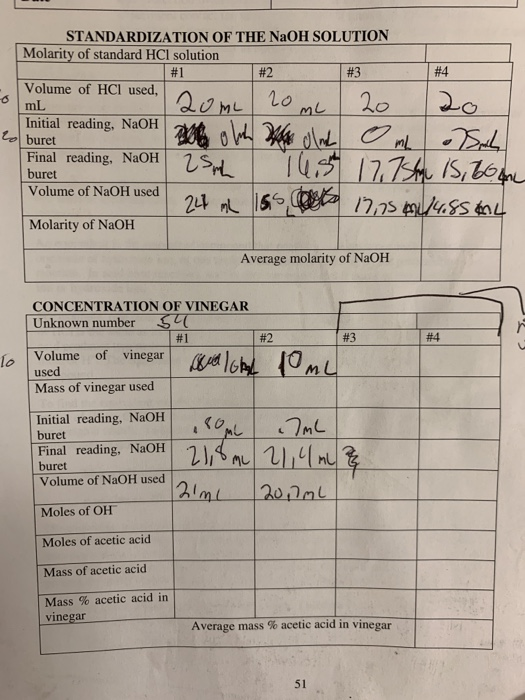 STANDARDIZATION OF THE NaOH SOLUTION
Molarity of standard HCl solution
#1 #2 #3 #4
Volume of HCl used, mL 20 mL 20 mL 20 20
Initial reading, NaOH buret 0 mL .75mL
Final reading, NaOH buret 25mL 17,75mL
Volume of NaOH used 24 mL 17,75 mL 14.85 mL
Molarity of NaOH
Average molarity of NaOH
CONCENTRATION OF VINEGAR
Unknown number
#1 #2 #3 #4
Volume of vinegar used 10 mL
Mass of vinegar used
Initial reading, NaOH buret .80mL .7mL
Final reading, NaOH buret 21,8 mL 21,4 mL
Volume of NaOH used 21mL 20,7mL
Moles of OH⁻
Moles of acetic acid
Mass of acetic acid
Mass % acetic acid in vinegar
Average mass % acetic acid in vinegar
51